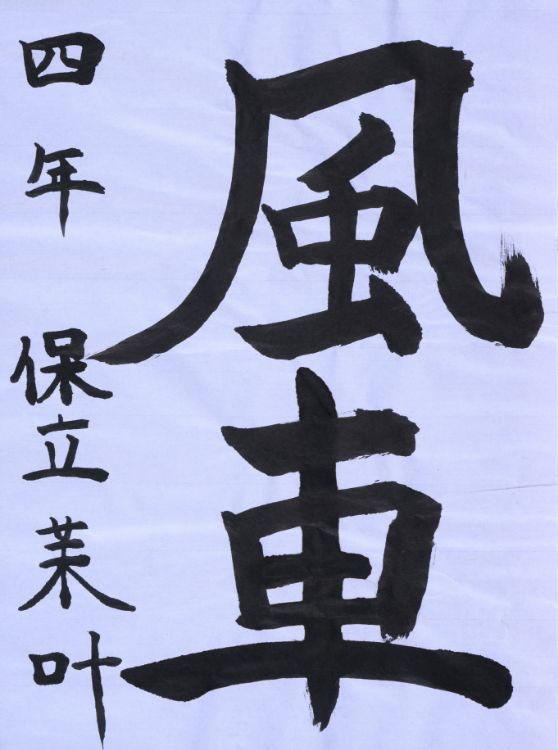 風車
四年 保立茉叶